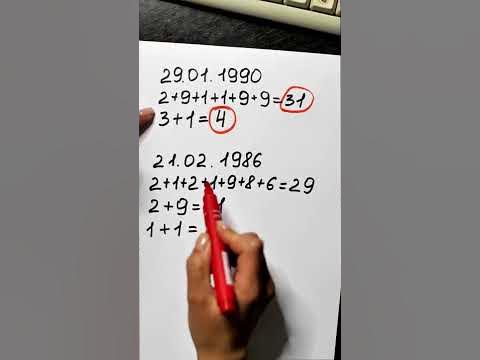 29.01.1990
2+9+1+1+9+9=31
3+1=4
21.02.1986
2+1+2+1+9+8+6=29
2+9=
1+1=